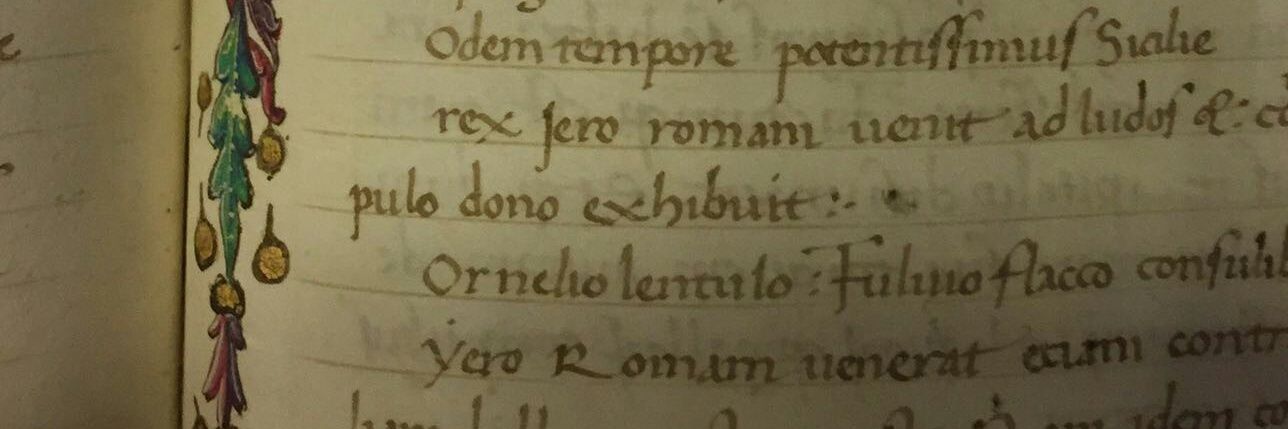 Odem tempore potentissimus Sicilie
rex jero romam uenit ad ludos &:
pulo dono exhibuit :
Ornelio lentulo : Fuluio flacco
yero Romam uenerat
idem